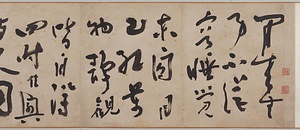 閒来無
事不從
容睡覺
東窗日
已紅萬
物靜觀
皆自得
四時佳興
與人同